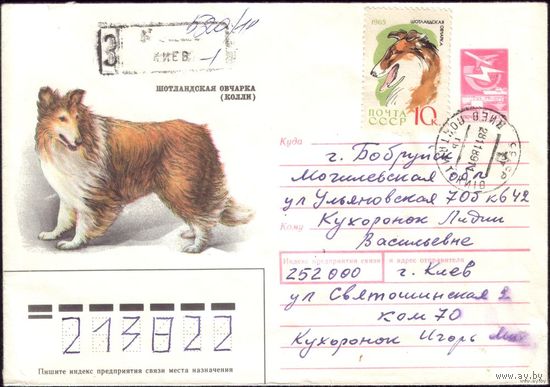 З
КИЕВ
ШОТЛАНДСКАЯ ОВЧАРКА
(КОЛЛИ)
1965
ШОТЛАНДСКАЯ
ОВЧАРКА
ПОЧТА
СССР
10К
Куда
г. Бобруйск
Могилевская обл
ул Ульяновская 70б кв 42
Кому
Кухоронок Лидии
Васильевне
Индекс предприятия связи
и адрес отправителя
252000
г. Киев
ул Святошинская 2
ком 70
Кухоронок Игорь
213822
Пишите индекс предприятия связи места назначения
www.ay.by